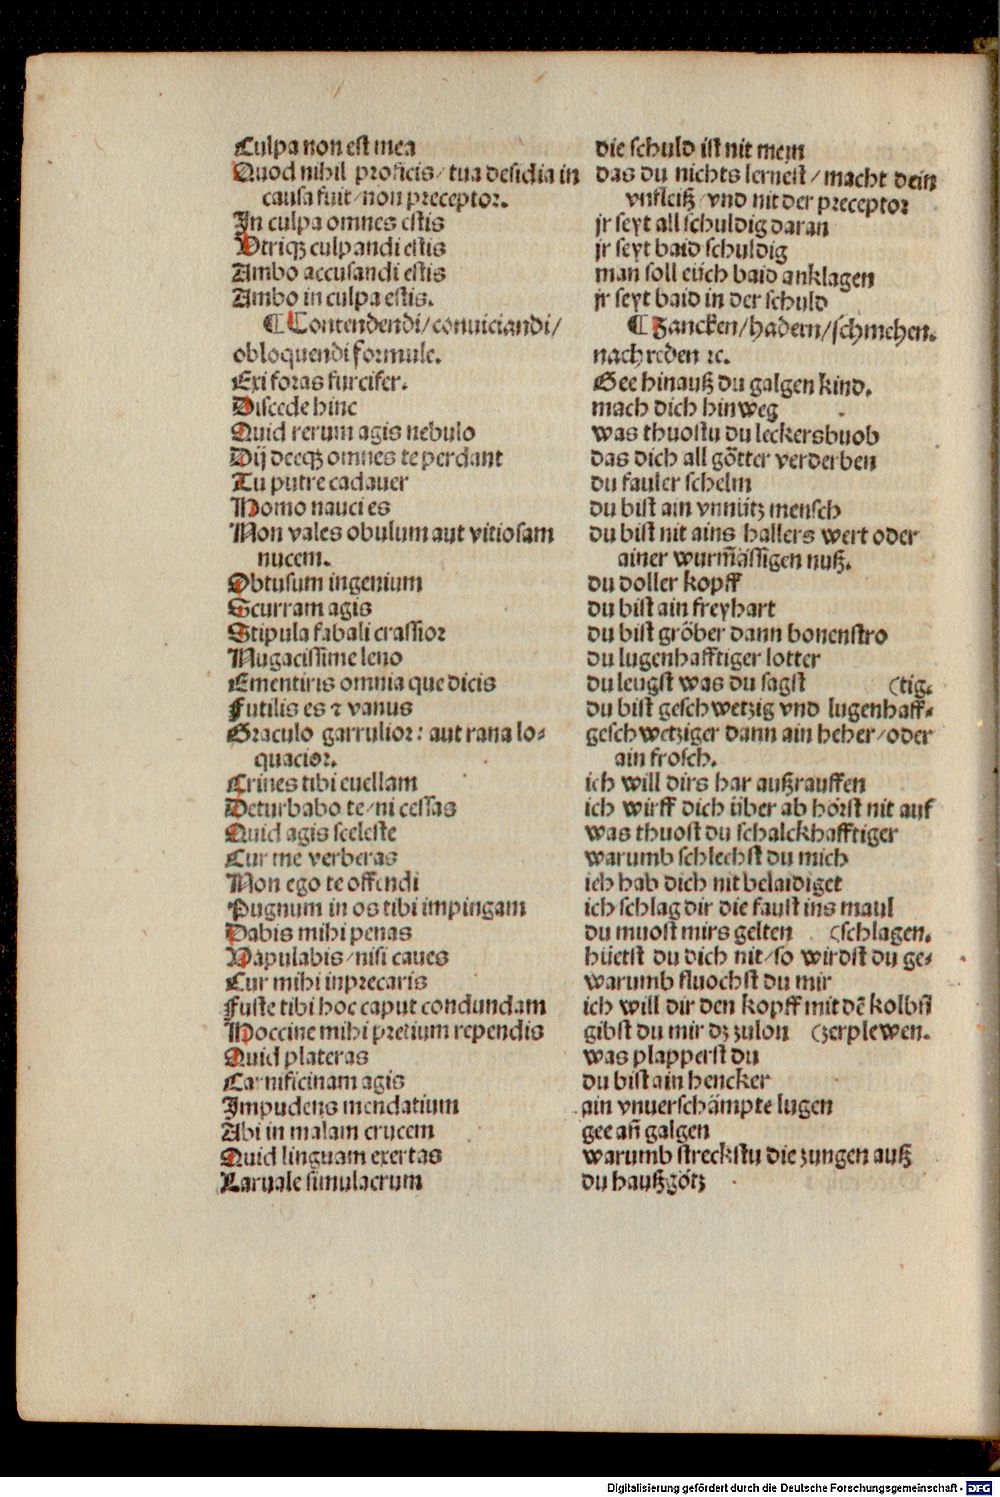 Culpa non est mea
Quod nihil proficis/ tua desidia in
causa fuit/ non preceptor.
In culpa omnes estis
Vtriqꝫ culpandi estis
Ambo accusandi estis
Ambo in culpa estis.
¶ Contendendi/ conuiciandi/
obloquendi formule.
Exi foras furcifer.
Discede hinc
Quid rerum agis nebulo
Dij deeqꝫ omnes te perdant
Tu putre cadauer
Homo nauci es
Non vales obulum aut vitiosam
nucem.
Obtusum ingenium
Scurram agis
Stipula fabali crassior
Nugacissime leno
Ementiris omnia que dicis
Futilis es ⁊ vanus
Graculo garrulior: aut rana lo⸗
quacior.
Crines tibi euellam
Deturbabo te/ ni cessas
Quid agis sceleste
Cur me verberas
Non ego te offendi
Pugnum in os tibi impingam
Dabis mihi penas
Vapulabis/ nisi caues
Cur mihi inprecaris
Fuste tibi hoc caput condundam
Hoccine mihi pretium rependis
Quid plateras
Carnificinam agis
Impudens mendatium
Abi in malam crucem
Quid linguam exertas
Laruale simulacrum
die schuld ist nit mein
das du nichts lernest/ macht dein
vnfleiß/ vnd nit der preceptor
jr seyt all schuldig daran
jr seyt baid schuldig
man soll eüch baid anklagen
jr seyt baid in der schuld
¶ Zancken/ hadern/ schmehen.
nachreden ꝛc.
Gee hinauß du galgen kind.
mach dich hinweg
was thuostu du leckersbuob
das dich all götter verderben
du fauler schelm
du bist ain vnnütz mensch
du bist nit ains hallers wert oder
ainer wurm̄ässigen nuß.
du doller kopff
du bist ain freyhart
du bist gröber dann bonenstro
du lugenhafftiger lotter
du leugst was du sagst (tig.
du bist geschwetzig vnd lugenhaff⸗
geschwetziger dann ain heher/ oder
ain frosch.
ich will dirs har außrauffen
ich wirff dich über ab hörst nit auf
was thuost du schalckhafftiger
warumb schlechst du mich
ich hab dich nit belaidiget
ich schlag dir die faust ins maul
du muost mirs gelten (schlagen.
hüetst du dich nit/ so wirdst du ge⸗
warumb fluochst du mir
ich will dir den kopff mit dē kolbē
gibst du mir dz zulon (zerplewen.
was plapperst du
du bist ain hencker
ain vnuerschämpte lugen
gee añ galgen
warumb streckstu die zungen auß
du haußgötz
Digitalisierung gefördert durch die Deutsche Forschungsgemeinschaft - DFG